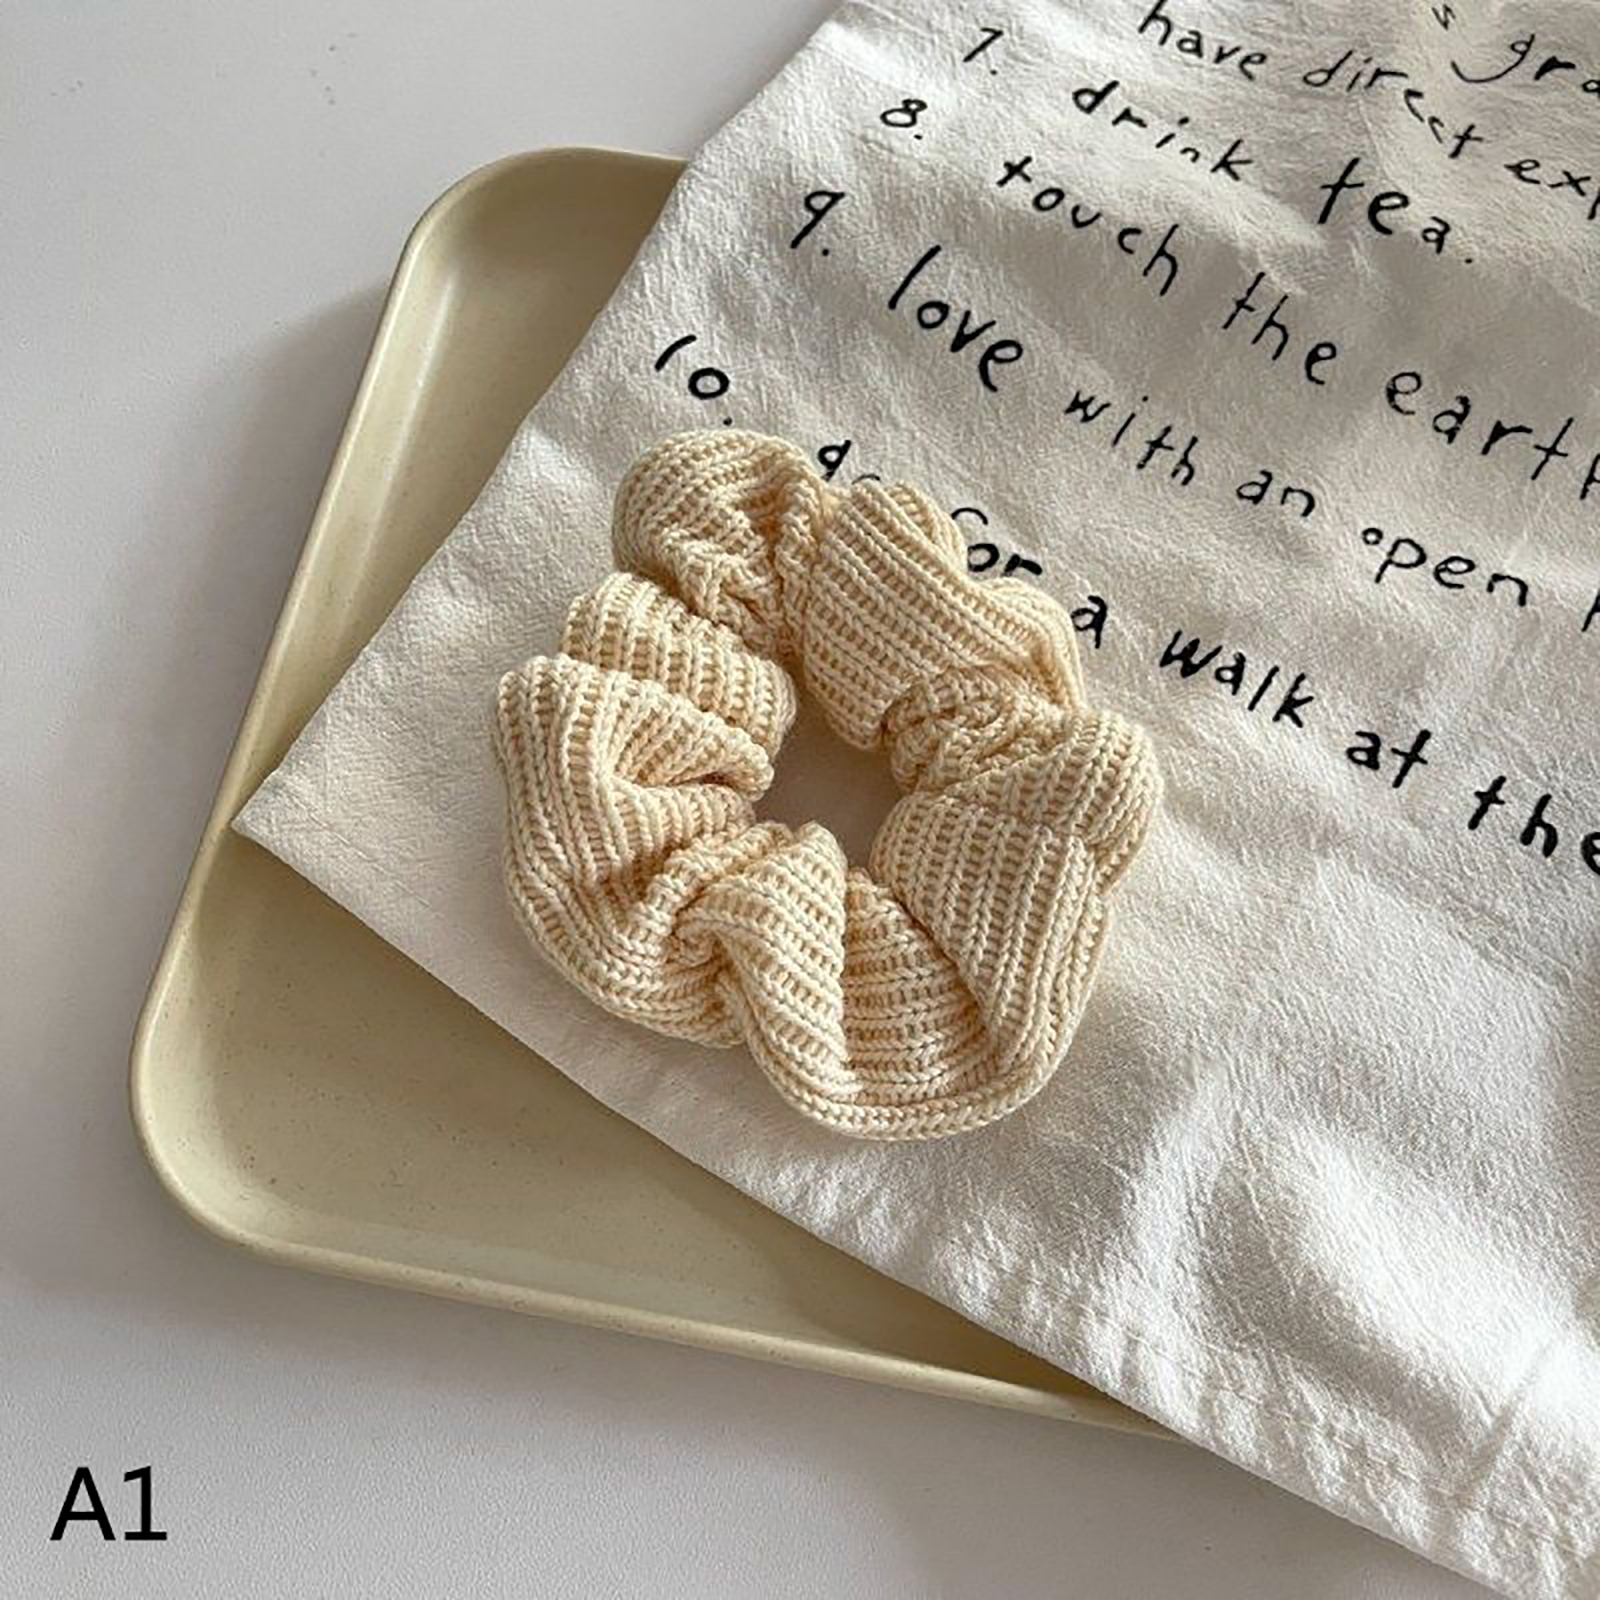 have direct
7. drink tea.
8. touch the earth
9. love with an open
10. go for a walk at the
A1